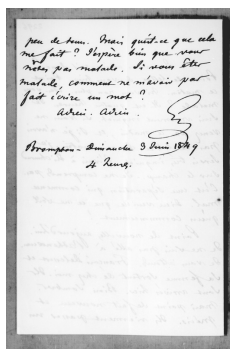 peu de tems. Mais qu'est-ce que cela
me fait ? J'espère bien que vous
n'êtes pas malade. Si vous êtes
malade, comment ne m'avoir pas
fait écrire un mot ?
Adieu. Adieu.
Brompton - Dimanche 3 Juin 1849
4 heures.